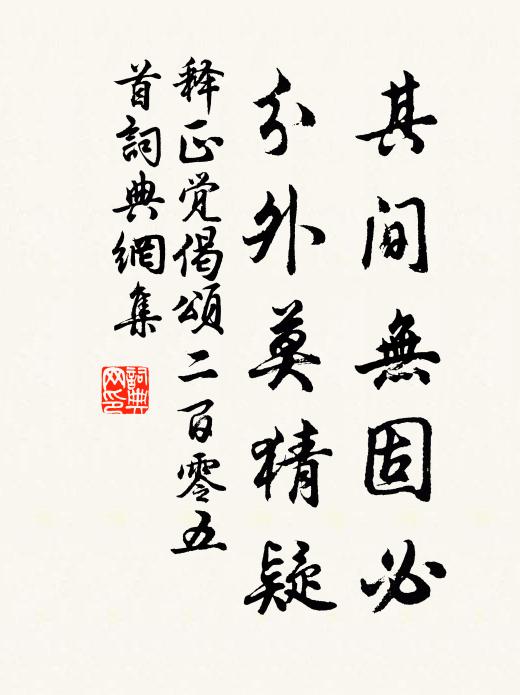 其间無固必
分外莫猜疑
释正觉偈頌二百零五
首詞典網集
詞典
网印